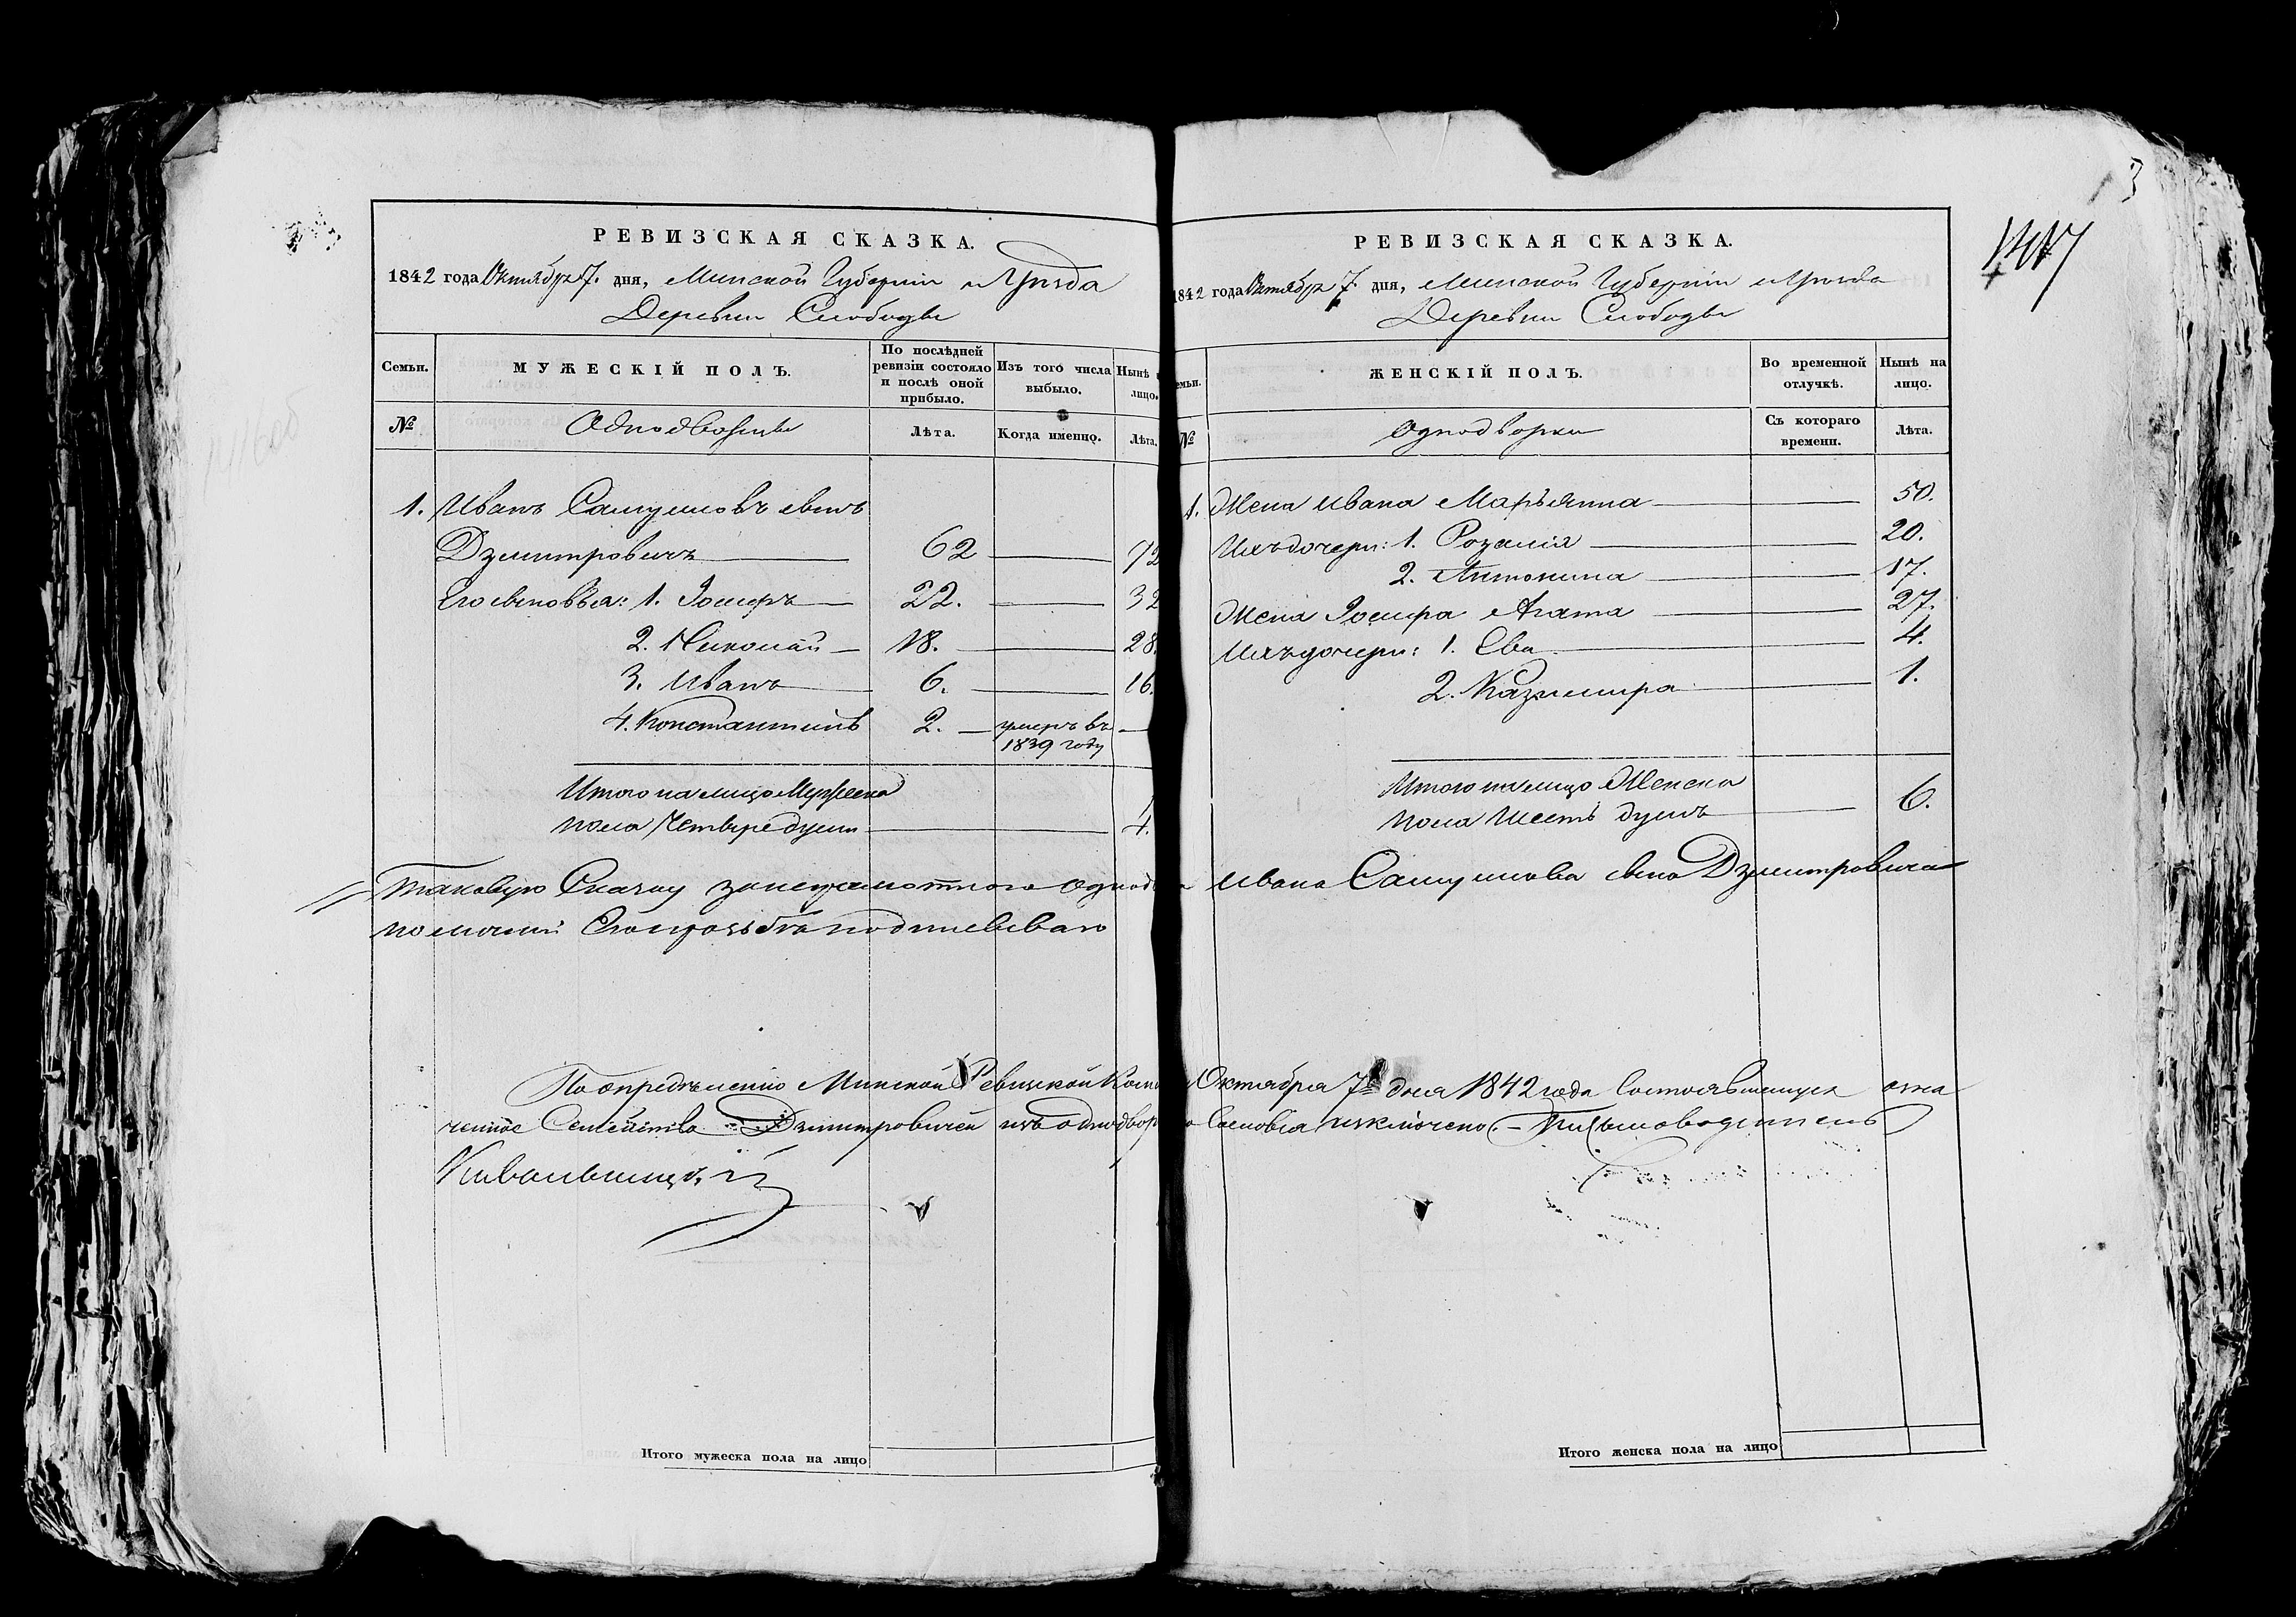 РЕВИЗСКАЯ СКАЗКА.
1842 года Октября 7. дня, Минской Губерніи и Уѣзда
Деревни Слободы
Семьи.
МУЖЕСКІЙ ПОЛЪ.
По послѣдней ревизіи состояло и послѣ оной прибыло.
Изъ того числа выбыло.
Нынѣ лицо.
№
Однодворцы
Лѣта.
Когда именно.
Лѣта.
1. Иванъ Самуиловъ сынъ
Дзмитровичъ 62 72
Его сыновья: 1. Іосифъ 22. 32
2. Николай 18. 28.
3. Иванъ 6. 16.
4. Константинъ 2. умеръ въ
1839 году
Итого на лицо Мужеска
пола Четыре души 4.
Таковую Сказку за неграмотного однод
по личной Его прозьбѣ подписываю
По опредѣленію Минской Ревизской Коми
ченное Семейство Дзмитровичей изъ однодвор
Итого мужеска пола на лицо
3
РЕВИЗСКАЯ СКАЗКА.
1842 года Октября 7. дня, Минской Губерніи и Уѣзда
Деревни Слободы
емьи.
ЖЕНСКІЙ ПОЛЪ.
Во временной отлучкѣ.
Нынѣ на лицо.
№
Однодворки
Съ котораго времени.
Лѣта.
1. Жена Ивана Марьянна 50.
Ихъ дочери: 1. Розалія 20.
2. Антонина 17.
Жена Іосифа Агата 27.
Ихъ дочери: 1. Ева 4.
2. Казимира 1.
Итого на лицо Женска
пола Шесть душъ 6.
Ивана Самуилова сына Дзмитровича
Октября 7го дня 1842 года состоявшемуся озна
Сословія изключено – Письмоводитель
Итого женска пола на лицо